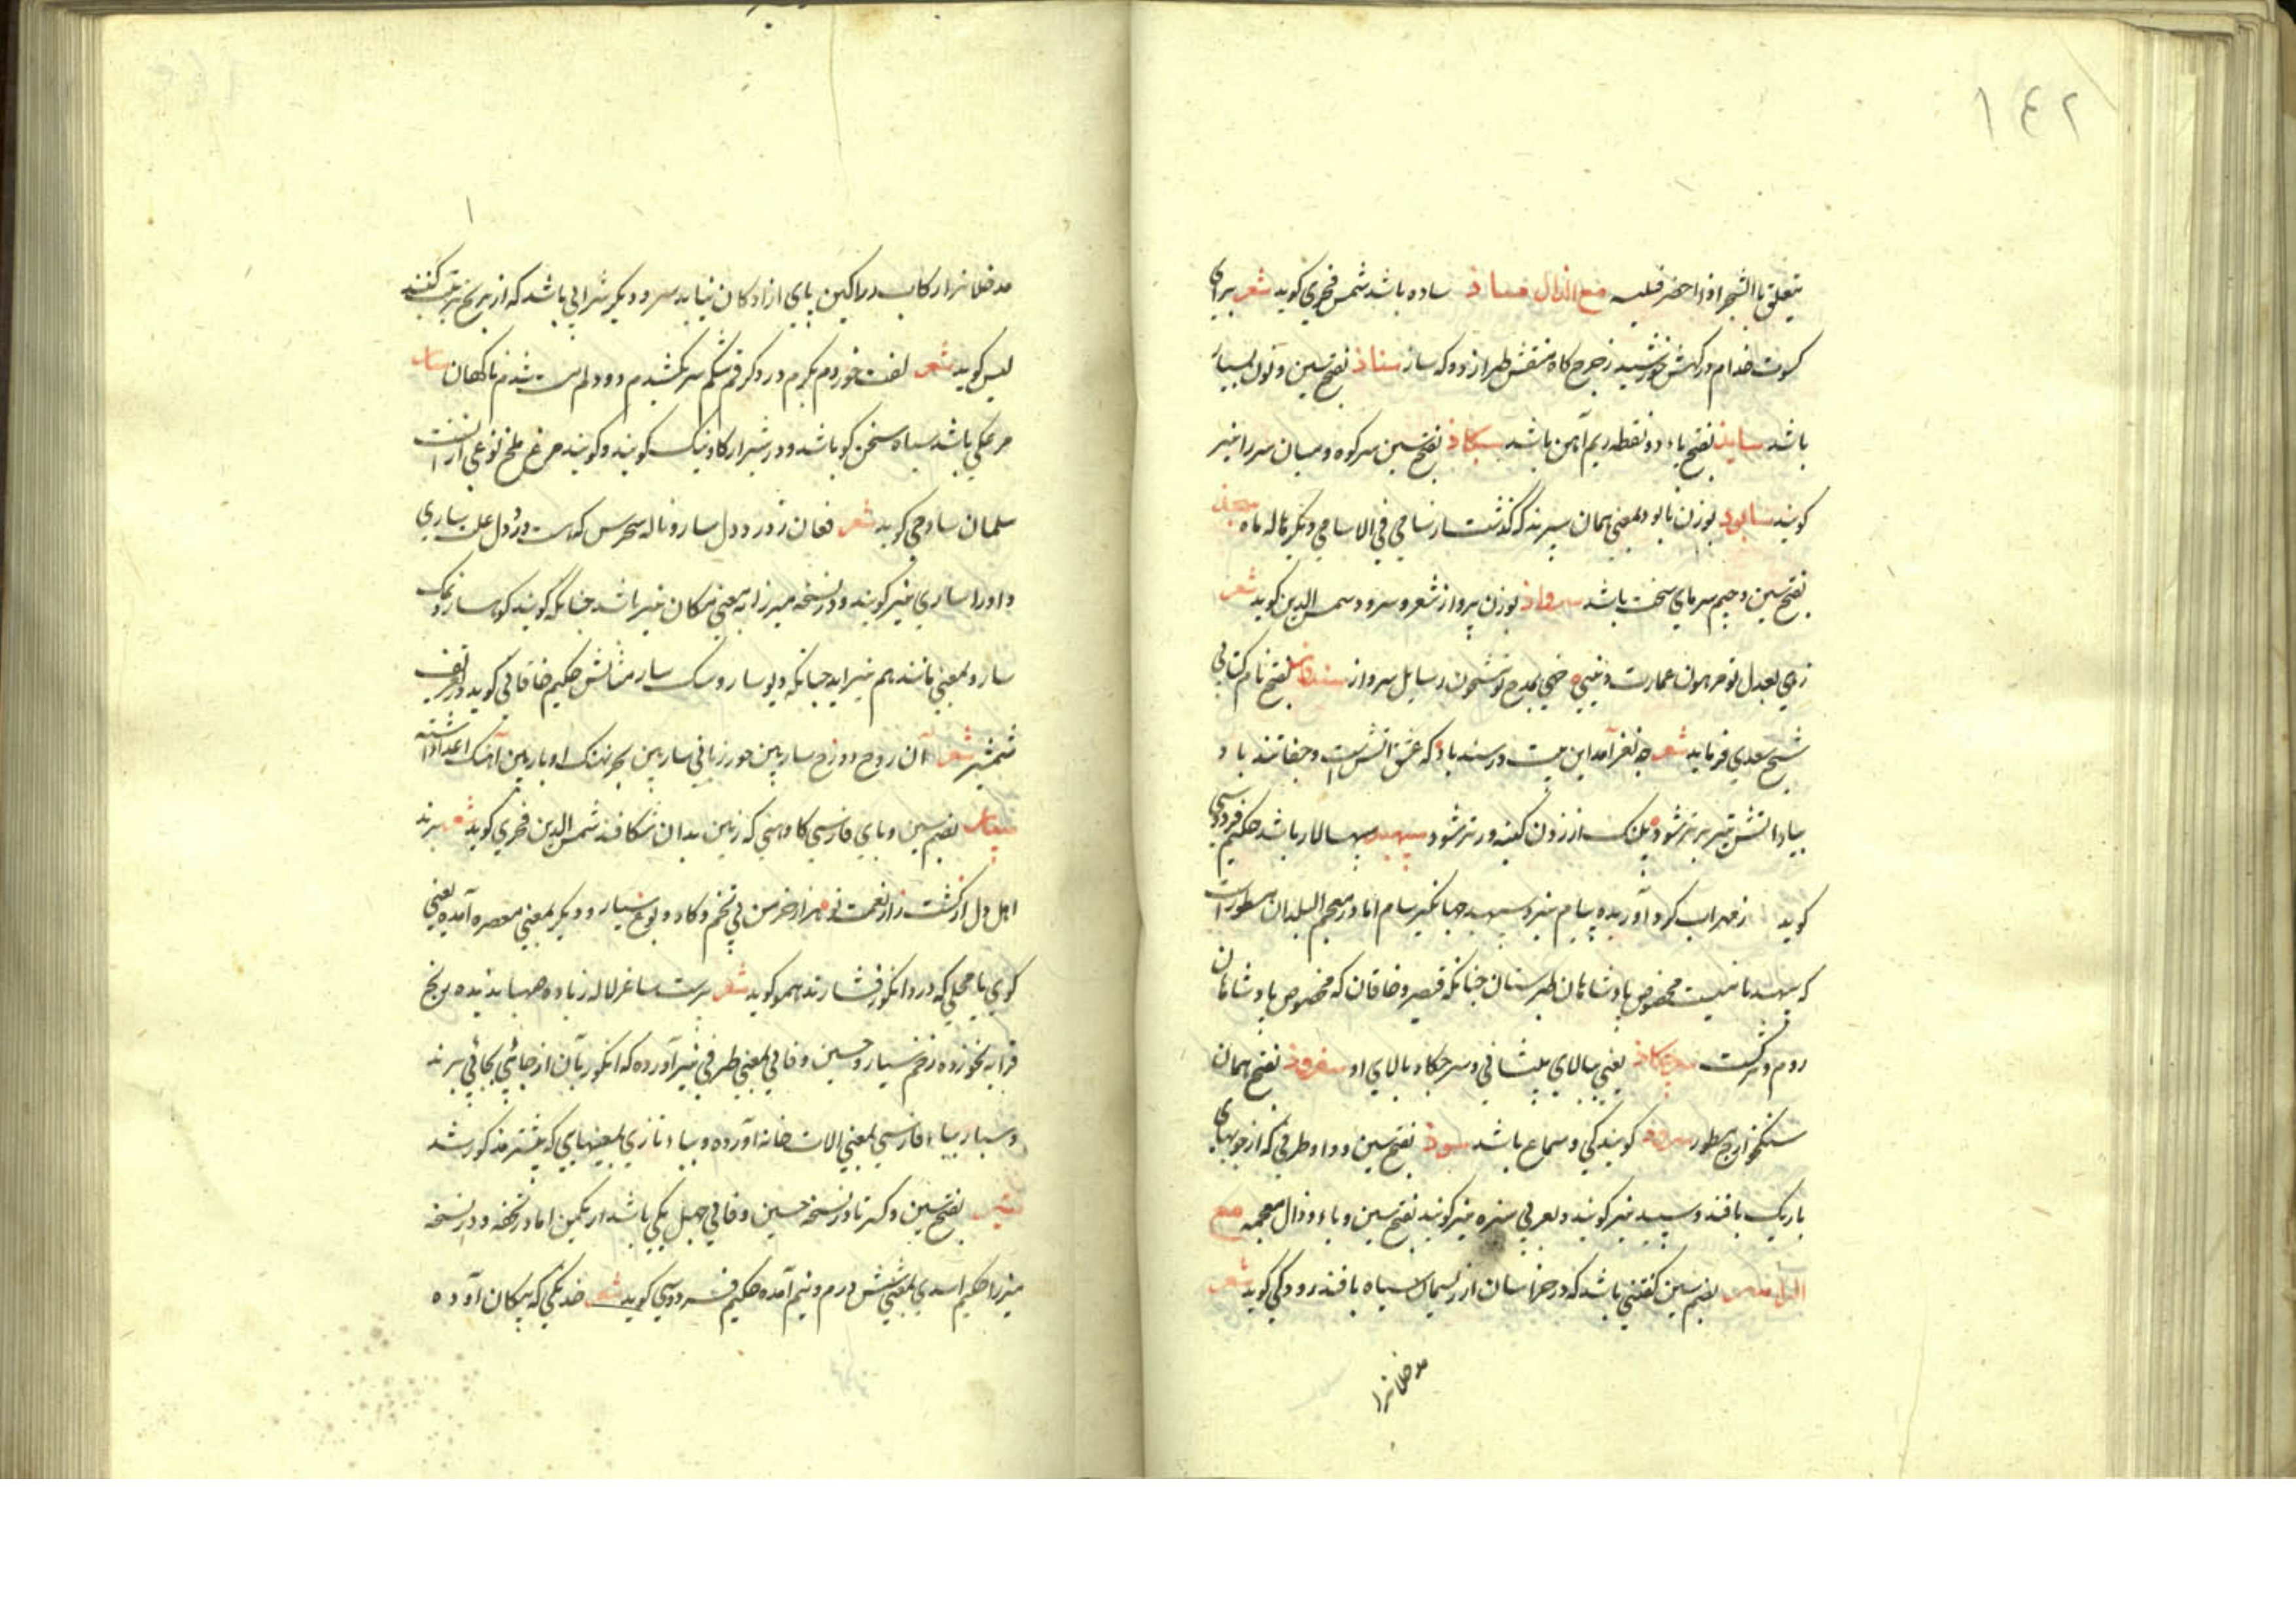 ۱۴۲
یتعلق بالشجر اذا اخضر فلیسه مع الذال ساذ ساده باشد شمس فخری کوید شعر برای
کسوت خدام درکهش خورشید ز چرخ کاه منقش طراز دوکه ساز سناذ بفتح سین و نون بسیار
باشد ساید بفتح یاء دو نقطه ریم آهن باشد سکاذ بفتح سین سرکوه و میان سر را نیز
کویند سابود بوزن نابود بمعنی همان سپرند که گذشت سامی فی الاسامی دیکر هاله ماه سجد
بفتح سین و جیم سرمای سخت باشد سرواذ بوزن پرواز شعر و سرود شمس الدین کوید شعر
زهی بعدل تو مرهون عمارت دنیی زهی بمدح تو مشحون رسایل سرواذ سندباد بفتح نام کتابی
شیخ سعدی فرماید شعر چه نغز آمد این بیت در سندباد که عشق آتش است و جفا تند باد
بباد آتش تیز برتر شود پلنک از زدن کینه ورتر شود سپهبد سپهسالار باشد حکیم فردوسی
کوید ز مهراب کرد آوریده پیام نبرد سپهبد جهانکیر سام اما در معجم البلدان مسطور است
که سپهبد نامیست مخصوص پادشاهان طبرستان چنانکه قیصر و خاقان که مخصوص پادشاهان
روم و ترکست سرچکاذ یعنی بالای پیشانی و سر چکاد بالای او سفرود بفتح همان
سنکخوارج مسطور سرود کویندکی و سماع باشد سبود بفتح سین و واو ظرفی که از چوبهای
باریک بافند و سبید نیز کویند و بعربی سبزه نیز کویند بفتح سین و باء و ذال معجمه مع
الراء بضم سین کفتنی باشد که در خراسان از ریسمان سیاه بافند رودکی کوید شعر
مدخلانرا
مدخلانرا رکاب زراکین پای ازادکان نیابد سر و دیکر شرابی باشد که از برنج ترتیب کنند
لبیبی کوید شعر لفت خوردم بکرم درد کرفتم شکم سر بکشیدم دو دم مست شدم ناکهان سار
مرغکی باشد سیاه سخن کو باشد و در شیراز کاونیک کویند و کویند مرغ ملخ نوعی از آنست
سلمان ساوجی کوید شعر فغان ز درد دل سار و ناله سحرس که است در دل علت ساری
و او را ساری نیز کویند و در نسخه میرزا بمعنی مکان نیز باشد چنانکه کویند کوهسار و نمک
سار و بمعنی مانند هم نیز اید چنانکه دیوسار و سک سار مثالش حکیم خاقانی کوید در تعریف
شمشیر شعر آن روح دوزخ سار بین حور زبانی سار بین بحر نهنک اوبار بین آهنک اعدا داشته
سپار بضم سین و بای فارسی کاو آهنی که زمین بدان شکافند شمس الدین فخری کوید شعر برند
اهل دل از کشت زار نعمت تو هزار خرمن بی تخم و کاو و یوغ سپار و دیکر بمعنی معصره آمده یعنی
کوی یا محلی که در و انکور فشارند همو کوید شعر برست ساغر لاله ز باده صهبا ندیده رنج
قرابه نخورده زخم سپار و حسین وفائی بمعنی ظرفی نیز آورده که انکور بآن از جائی بجائی برند
و سپار بباء فارسی بمعنی الات خانه آورده و بباء تازی بمعنیهایی که پیشتر مذکور شد
ستیر بفتح سین و کسر تا در نسخه حسین وفائی چهل یکی باشد از یک من اما در تحفه و در نسخه
میرزا حکیم اسدی بمعنی شش درم و نیم آمده حکیم فردوسی کوید شعر خدنکی که پیکان آو ده